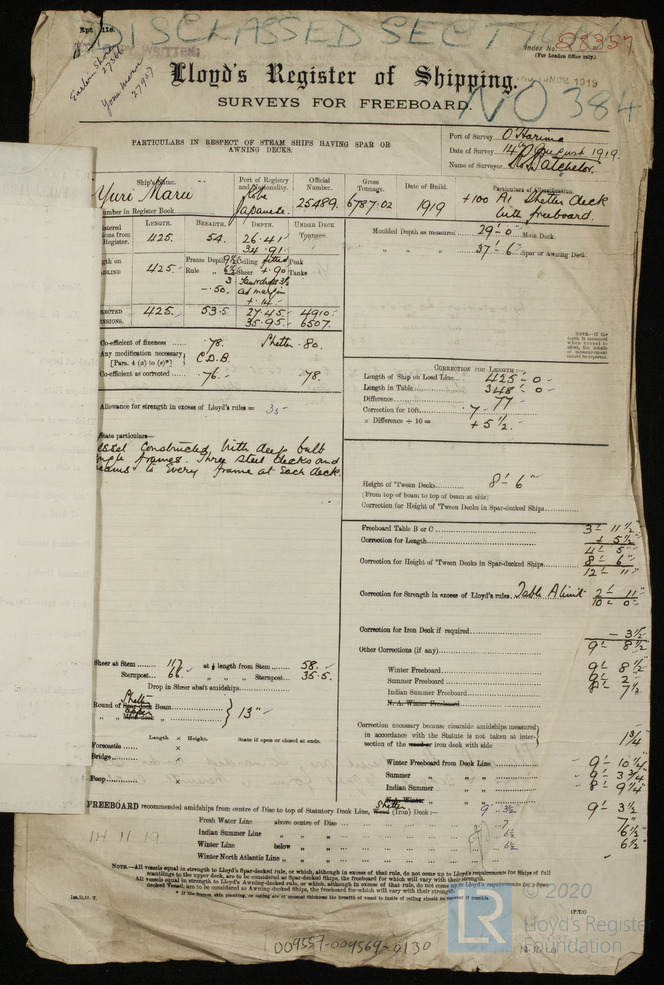 DISCLASSED SECT
Index No. 28357
(For London Office only.)
Eastern Shore
27866
Yone Maru
27957
NOV 1919
Lloyd's Register of Shipping.
SURVEYS FOR FREEBOARD.
NO 384
PARTICULARS IN RESPECT OF STEAM SHIPS HAVING SPAR OR
AWNING DECKS.
Port of Survey O'Harima
Date of Survey 14th August 1919.
Name of Surveyor Batchelor.
Ship's Name. Port of Registry and Nationality. Official Number. Gross Tonnage. Date of Build. Particulars of Classification.
Yuri Maru Kobe Japanese. 25489. 6787.02 1919 +100 A1 Shelter deck
with freeboard.
Number in Register Book
LENGTH. BREADTH. DEPTH. UNDER DECK Tonnage.
Register. 425. 54. 26.41
34.91
425. Frame Depth 9½ Ceiling fitted Peak
Rule " 6½ Sheer + .90 Tanks
3
-.50.
+.14
425. 53.5 27.45 4910
35.95 6507.
Moulded Depth as measured 29'-0" Main Deck.
" " " 37'-6" Spar or Awning Deck.
Co-efficient of fineness .78 Shelter .80.
Any modification necessary
[Para. 4 (a) to (e)*] C.D.B.
Co-efficient as corrected .76 .78.
Allowance for strength in excess of Lloyd's rules = 35
CORRECTION FOR LENGTH:
Length of Ship on Load Line 425 - 0
Length in Table 348 - 0
Difference 77
Correction for 10ft. .7
× Difference ÷ 10 = + 5½.
State particulars—
Vessel Constructed with deep bulb
angle frames. Three Steel Decks and
beams to Every frame at Each deck.
Height of 'Tween Decks 8'-6"
(From top of beam to top of beam at side)
Correction for Height of 'Tween Decks in Spar-decked Ships
Freeboard Table B or C 3'-11½"
Correction for Length + 5½"
4'-5"
Correction for Height of 'Tween Decks in Spar-decked Ships 8'-6"
12'-11"
Correction for Strength in excess of Lloyd's rules. Table A limit 2'-11"
10'-0"
Correction for Iron Deck if required - 3½
9'-8½
Other Corrections (if any)
Winter Freeboard 9'-8½
Summer Freeboard 9'-2
Indian Summer Freeboard 8'-7½
N. A. Winter Freeboard
Sheer at Stem 117 at ⅛ length from Stem 58.
Sternpost 66. " " " Sternpost 35.5.
Drop in Sheer abaft amidships
Shelter
Round of Beam
Upper 13"
Length × Height. State if open or closed at ends.
Forecastle ×
Bridge ×
Poop ×
Correction necessary because clearside amidships measured
in accordance with the Statute is not taken at inter-
section of the wooden iron deck with side 1¾"
Winter Freeboard from Deck Line 9'-10¼
Summer " " 9'-3¾
Indian Summer " " 8'-9¼
N. A. Winter " "
FREEBOARD recommended amidships from centre of Disc to top of Statutory Deck Line, Shelter Wood (Iron) Deck:— 9' 3½ 9'-3½
Fresh Water Line above centre of Disc 7 7"
Indian Summer Line " " 6½ 6½"
Winter Line below " 6½ 6½
Winter North Atlantic Line " "
14.11.19
NOTE.—All vessels equal in strength to Lloyd's Spar-decked rule, or which, although in excess of that rule, do not come up to Lloyd's requirements for Ships of full
scantlings to the upper deck, are to be considered as Spar-decked Ships, the freeboard for which will vary with their strength.
All vessels equal in strength to Lloyd's Awning-decked rule, or which, although in excess of that rule, do not come up to Lloyd's requirements for a Spar-
decked Vessel, are to be considered as Awning-decked Ships, the freeboard for which will vary with their strength.
P.T.O
009557-009569-0130
LR
© 2020
Lloyd's Register
Foundation